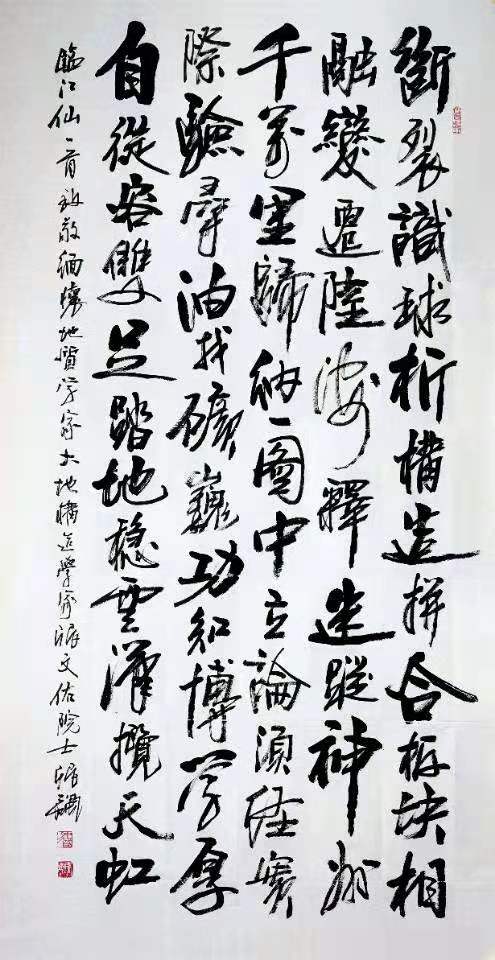 斷裂識球析構造拼合板块相
融變遷陸海釋迷蹤神州
千萬里歸納一圖中立論須經實
際驗尋油找礦巍功知博学厚
自從容雙足踏地穩雲漢攬天虹
臨江仙一首致敬緬懷地質学家大地構造學家張文佑院士